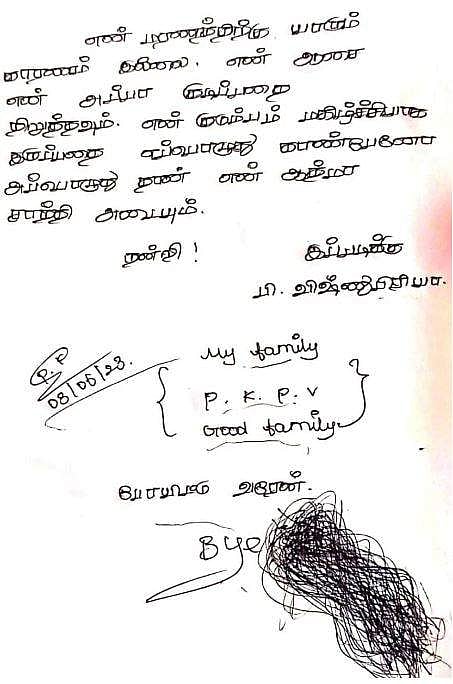 என் மரணத்திற்கு யாரும்
காரணம் இல்லை. என் ஆசை
என் அப்பா குடிப்பதை
நிறுத்தவும். என் குடும்பம் மகிழ்ச்சியாக
இருப்பதை எப்பொழுது காண்பேனோ
அப்பொழுது தான் என் ஆத்மா
சாந்தி அடையும்.
நன்றி! இப்படிக்கு
பி. விஷ்ணுபிரியா.
P.P
08/06/23.
My family
P. K. P. V
Good family
போய்வரு வரேன்.
Bye